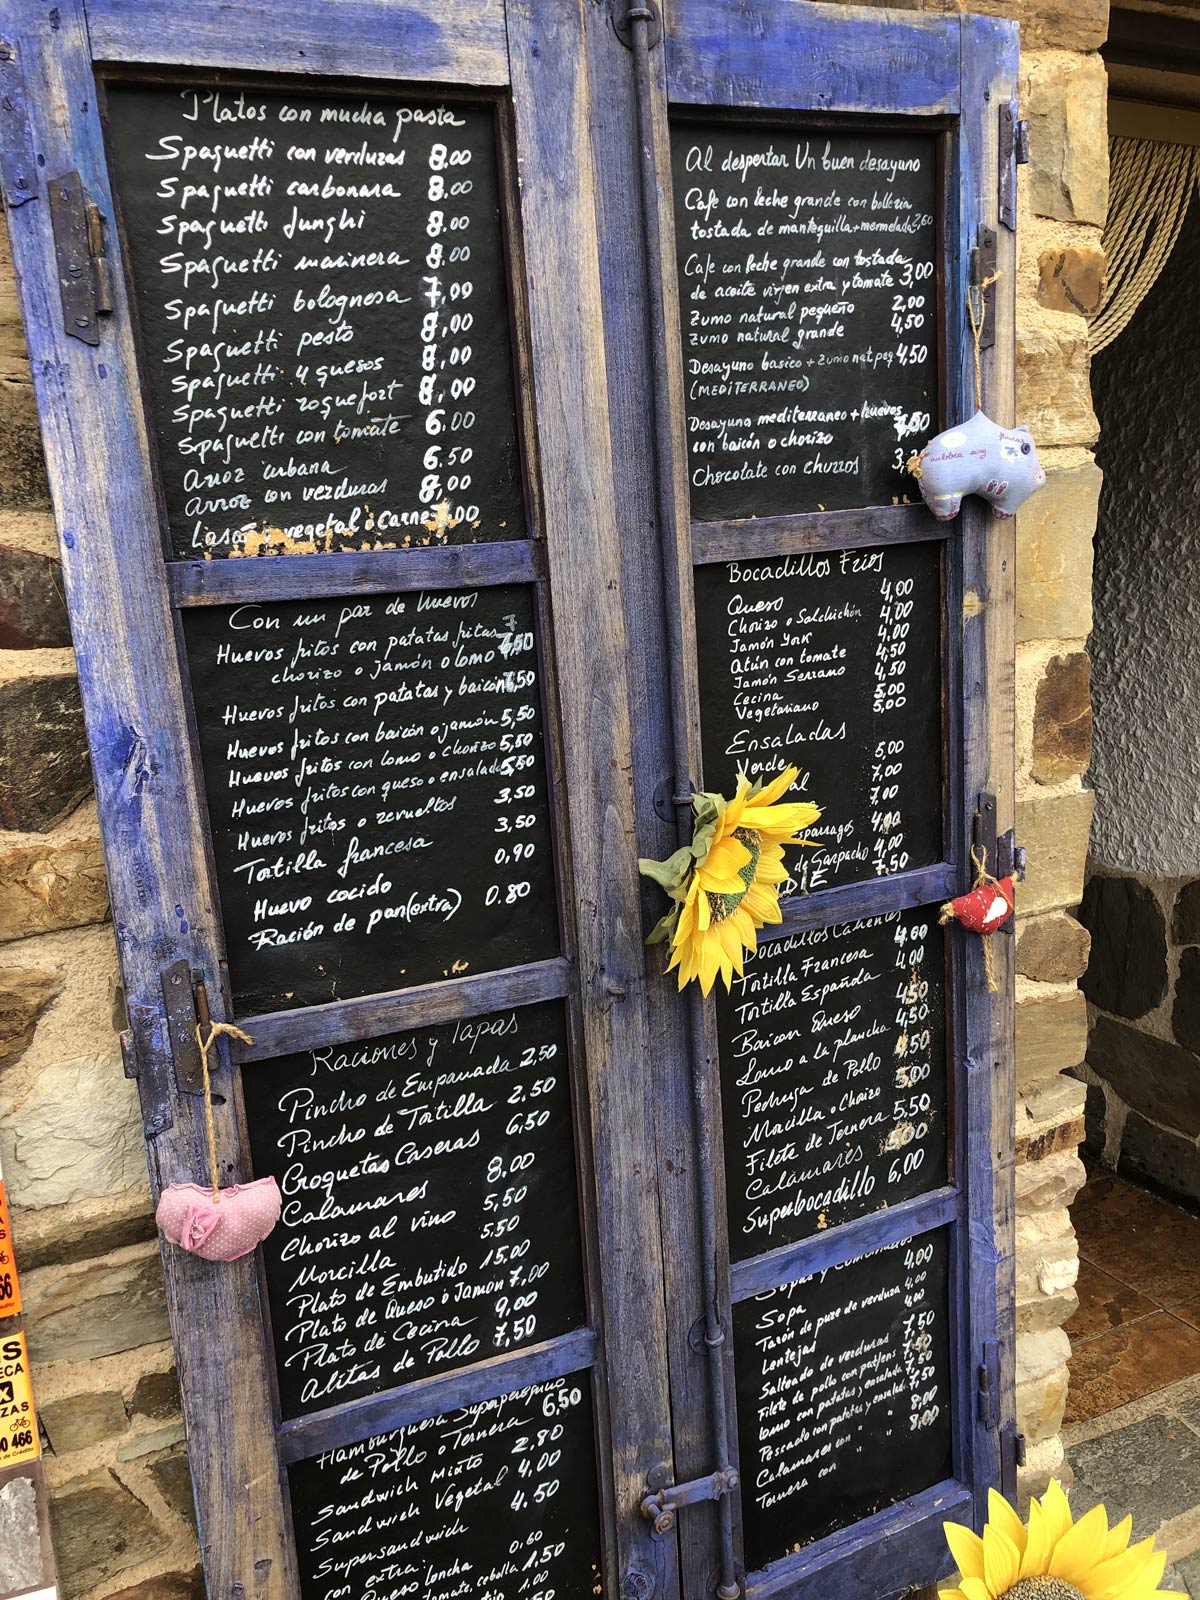 Platos con mucha pasta
Spaguetti con verduras 8.00
Spaguetti carbonara 8.00
Spaguetti funghi 8.00
Spaguetti marinera 8.00
Spaguetti bolognesa 7,00
Spaguetti pesto 8,00
Spaguetti 4 quesos 8,00
Spaguetti roquefort 8,00
Spaguetti con tomate 6.00
Arroz urbana 6.50
Arroz con verduras 8,00
vegetal o Carne 7.00
Con un par de huevos
Huevos fritos con patatas fritas
chorizo o jamón o lomo
Huevos fritos con patatas y baicon
Huevos fritos con baicón o jamón 5,50
Huevos fritos con lomo o chorizo 5,50
Huevos fritos con queso o ensalada 5,50
Huevos fritos o revueltos 3,50
Tortilla francesa 3,50
Huevo cocido 0,90
Ración de pan (extra) 0.80
Raciones y Tapas
Pincho de Empanada 2,50
Pincho de Tortilla 2.50
Croquetas Caseras 6,50
Calamares 8,00
Chorizo al vino 5,50
Morcilla 5.50
Plato de Embutido 15,00
Plato de Queso o Jamón 7,00
Plato de Cecina 9,00
Alitas de Pollo 7,50
Hamburguesa Superperegrino
de Pollo o Ternera 6,50
Sandwich Mixto 2,80
Sandwich Vegetal 4,00
Supersandwich 4.50
con extra:
Queso loncha 0,60
tomate, cebolla 1,50
1,00
Al despertar Un buen desayuno
Cafe con leche grande con bolleria
tostada de mantequilla + mermelada 2,60
Cafe con leche grande con tostada
de aceite virjen extra y tomate 3,00
Zumo natural pequeño 2,00
Zumo natural grande 4,50
Desayuno basico + zumo nat. peq. 4,50
(MEDITERRANEO)
Desayuno mediterraneo + huevos
con baicón o chorizo
Chocolate con churros 3,
Bocadillos Frios
Queso 4,00
Chorizo o Salchichón 4,00
Jamón York 4,00
Atún con tomate 4,50
Jamón Serrano 4,50
Cecina 5,00
Vegetariano 5,00
Ensaladas
Verde 5,00
7,00
7,00
4,00
de Gazpacho 4,00
7,50
Bocadillos Calientes
Tortilla Francesa 4.00
Tortilla Española 4,00
Baicon Queso 4,50
Lomo a la plancha 4,50
Pechuga de Pollo
Morcilla o Chorizo 5,00
Filete de Ternera 5,50
Calamares
Superbocadillo 6,00
Sopas y Combinados
Sopa 4,00
Tazón de pure de verdura 4,00
Lentejas 4,00
Salteado de verduras 7,50
Filete de pollo con pat/ens
lomo con patatas y ensalada 7,50
Pescado con patatas y ensalada 7,50
Calamares con " " 8,00
Ternera con " " 8,00